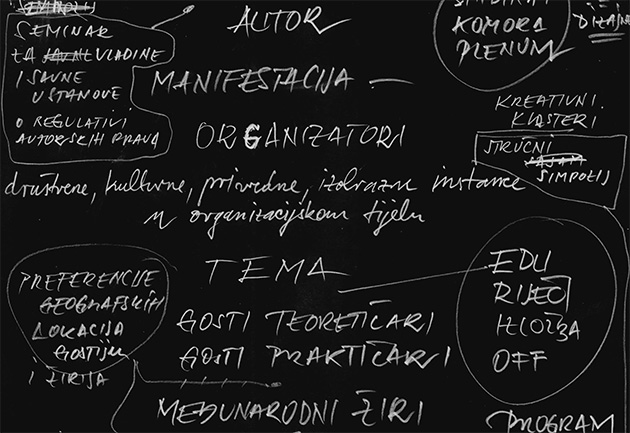 SEMINAR
ZA JAVNE VLADINE
I JAVNE
USTANOVE
O REGULATIVI
AUTORSKIH PRAVA
AUTOR
MANIFESTACIJA —
ORGANIZATORI
KOMORA
PLENUM
DIZAJNA
KREATIVNI
KLASTERI
STRUČNI
SIMPOZIJ
društvene, kulturne, privredne, izobrazne instance
u organizacijskom tijelu
TEMA
GOSTI TEORETIČARI
GOSTI PRAKTIČARI
MEĐUNARODNI ŽIRI
PREFERENCIJE
GEOGRAFSKIH
LOKACIJA
GOSTIJU
I ŽIRIJA
EDU
RIJEČ
IZLOŽBA
OFF
PROGRAM